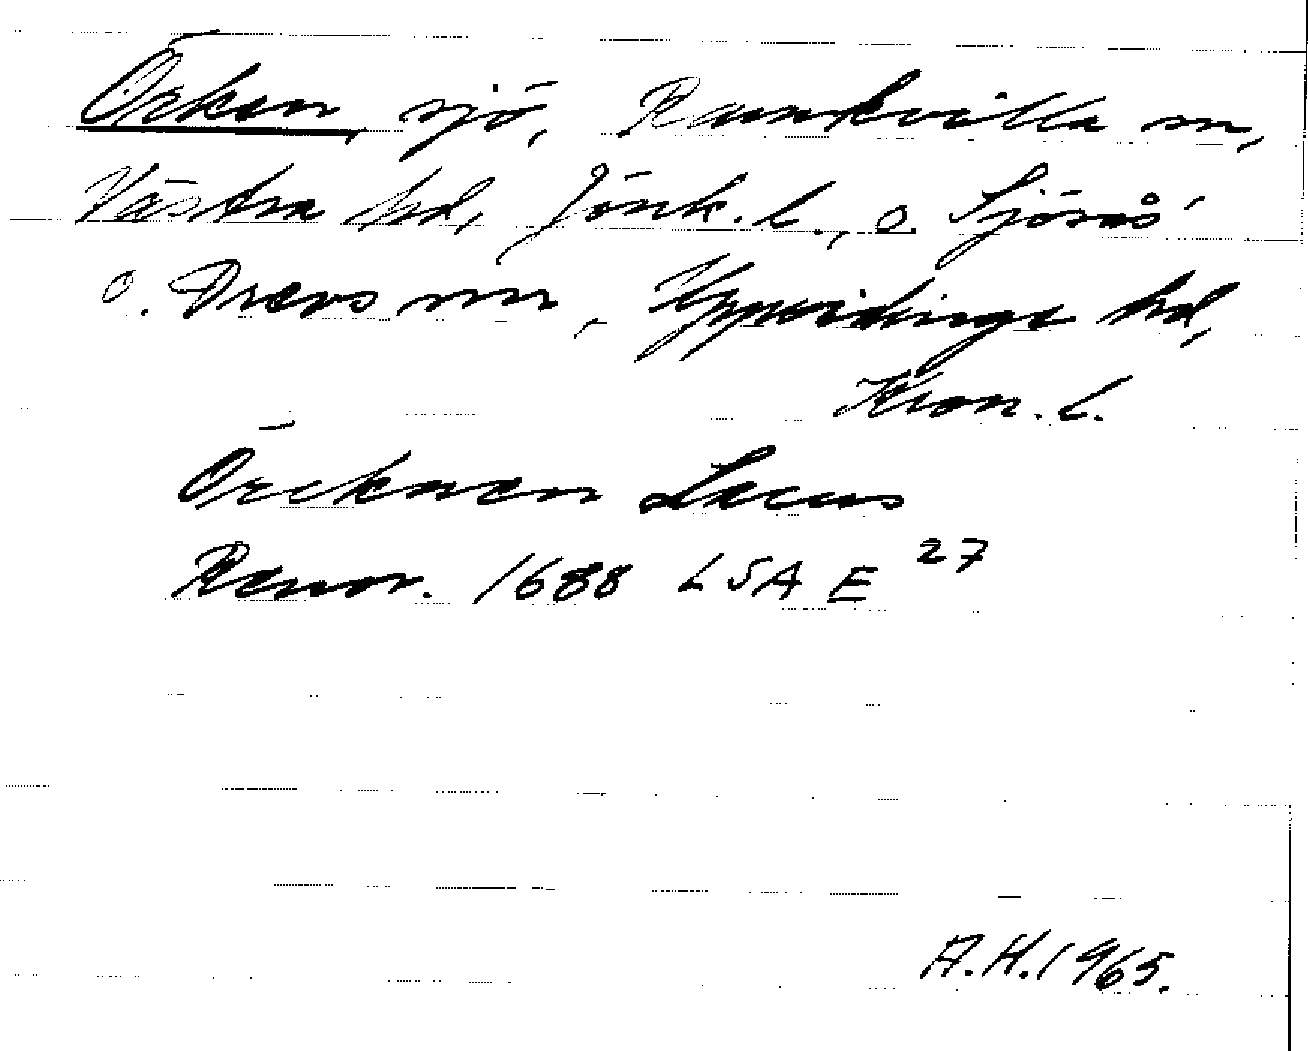 Örken, sjö, Ramkvilla sn,
Västra hd, Jönk. l., o. Sjösås
o. Drevs snr, Uppvidinge hd,
Kron. l.
Örcknen Lacus
Renov. 1688 LSA E 27
A.H. 1965.